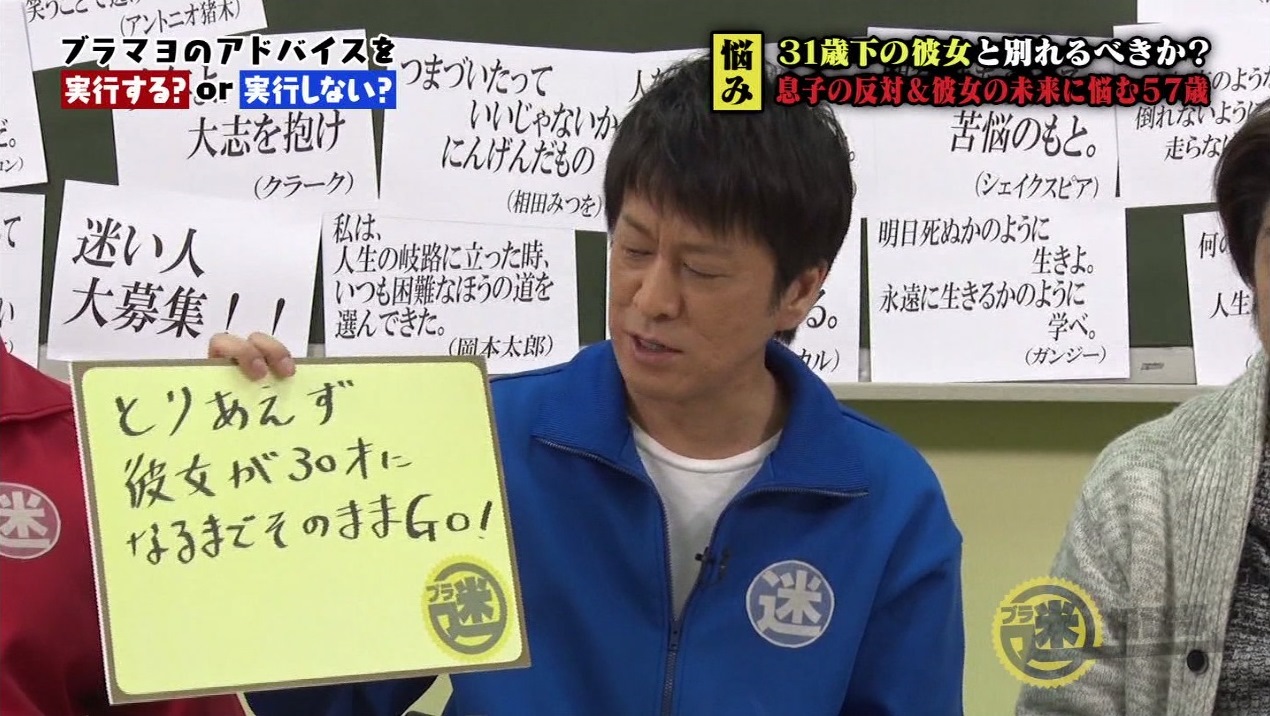 笑うことで
(アントニオ猪木)
ブラマヨのアドバイスを
実行する? or 実行しない?
悩み
31歳下の彼女と別れるべきか?
息子の反対&彼女の未来に悩む57歳
大志を抱け
(クラーク)
つまづいたって
いいじゃないか
にんげんだもの
(相田みつを)
苦悩のもと。
(シェイクスピア)
倒れないように
迷い人
大募集!!
私は、
人生の岐路に立った時、
いつも困難なほうの道を
選んできた。
(岡本太郎)
明日死ぬかのように
生きよ。
永遠に生きるかのように
学べ。
(ガンジー)
人生
とりあえず
彼女が30才に
なるまでそのままGo!
ブラ
迷
迷
迷
ブラ
迷